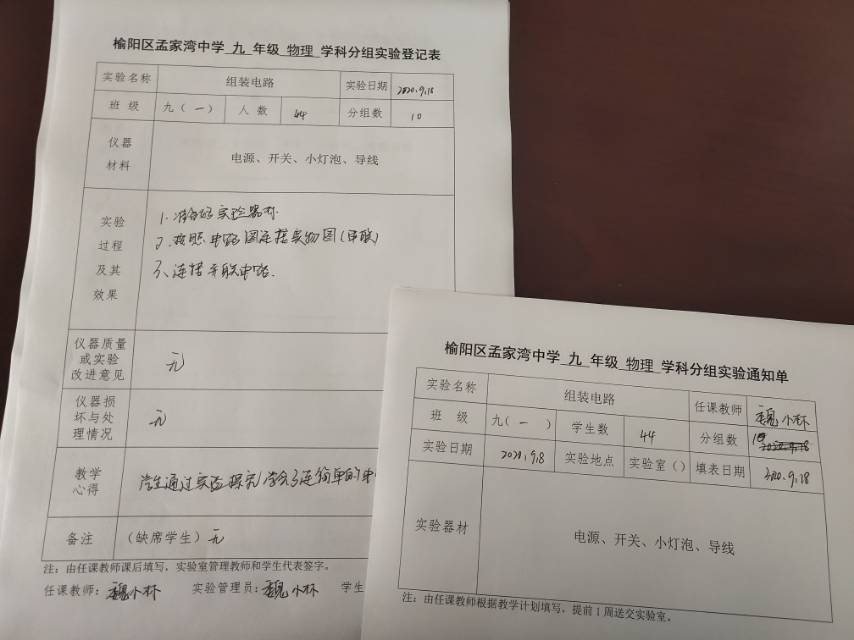 榆阳区孟家湾中学 九 年级 物理 学科分组实验登记表
实验名称 组装电路 实验日期 2020.9.18
班 级 九（一） 人 数 44 分组数 10
仪器
材料
电源、开关、小灯泡、导线
实验
过程
及其
效果
1、准备好实验器材
2、按照电路图连接实物图(串联)
3、连接并联电路.
仪器质量
或实验
改进意见
无
仪器损
坏与处
理情况
无
教学
心得
学生通过实验探究,学会了连简单的电
备注 （缺席学生）无
注：由任课教师课后填写，实验室管理教师和学生代表签字。
任课教师：魏小林 实验管理员：魏小林 学生
榆阳区孟家湾中学 九 年级 物理 学科分组实验通知单
实验名称 组装电路 任课教师 魏小林
班 级 九（一） 学生数 44 分组数 10
实验日期 实验地点 实验室（） 填表日期
实验器材 电源、开关、小灯泡、导线
注：由任课教师根据教学计划填写，提前1周送交实验室。